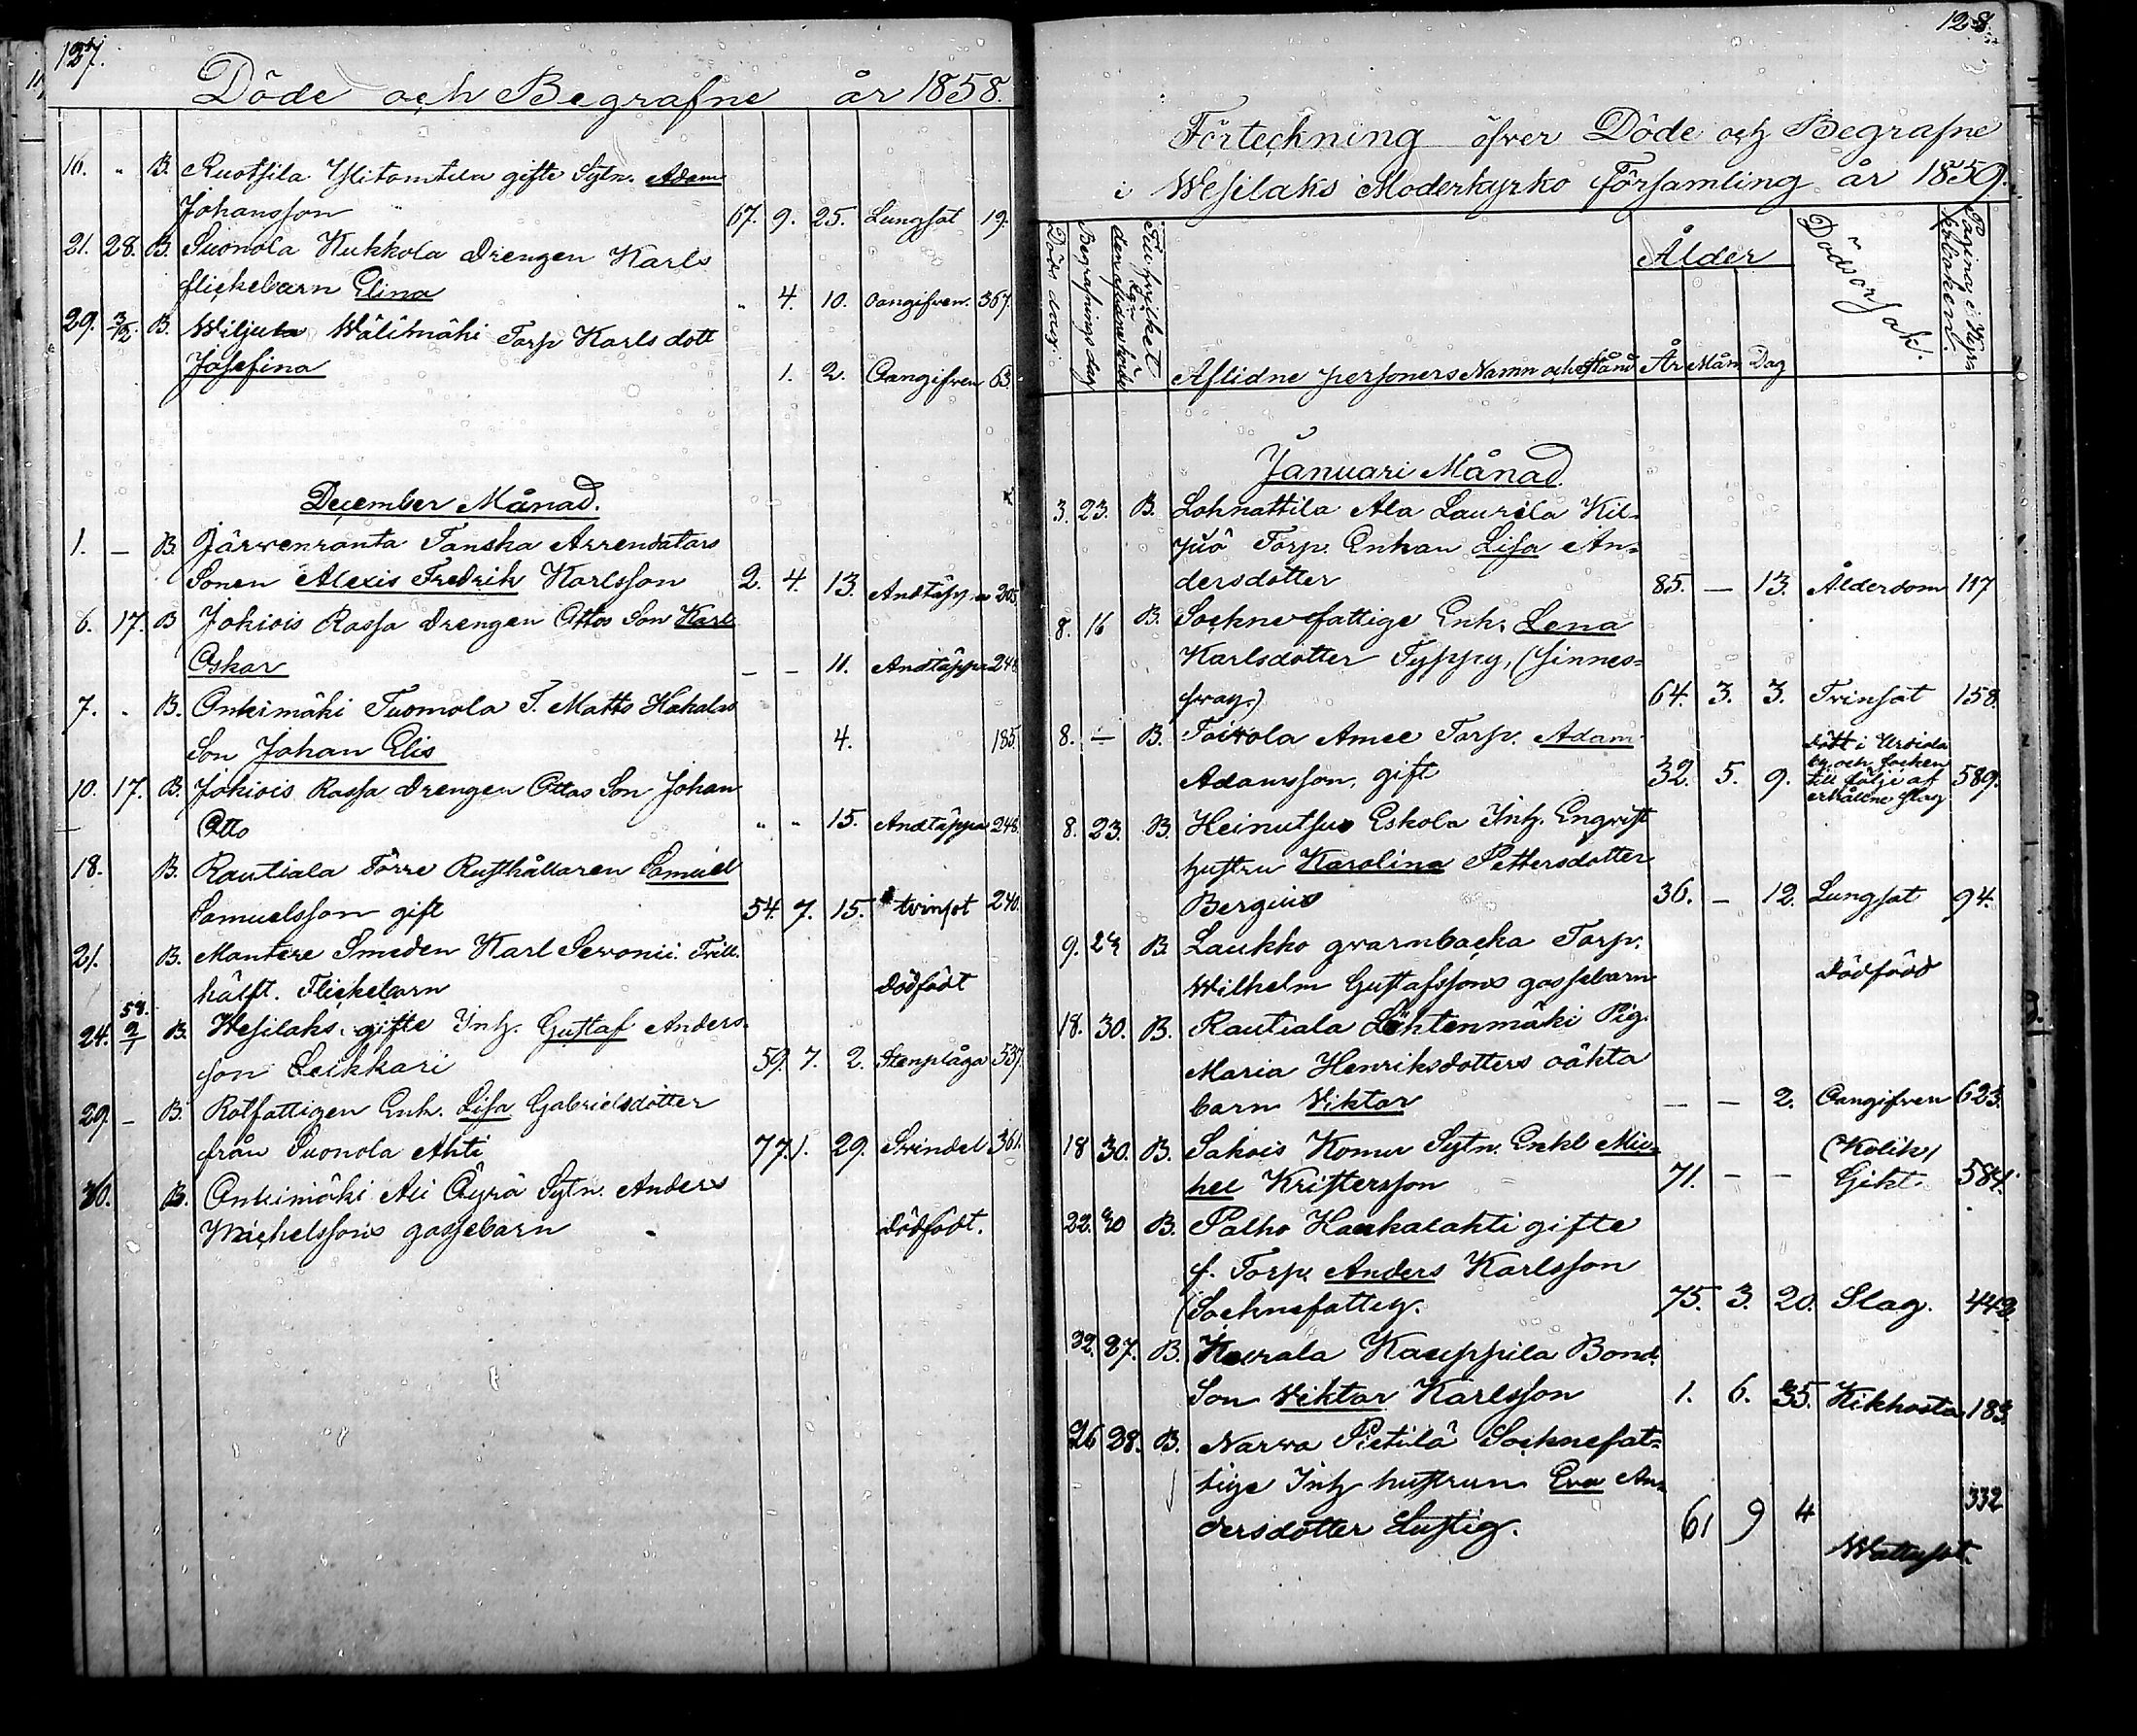 127.
Döde och Begrafne år 1858.
16. " B. Ruotsila Ylitomtila gifte Sytn. Adam
Johansson 67. 9. 25. Lungsot 19.
21. 28. B. Suonola Kukkola Drengen Karls
flickebarn Elina " 4. 10. Oangifven. 367.
29. 3/12. B. Wiljula Wälimäki Torp Karls dott
Josefina 1. 2. Oangifven 63
December Månad.
1. — B. Järvenranta Tanska Arrendators
Sonen Alexis Fredrik Karlsson 2. 4. 13. Andtäppa 205.
6. 17. B Jokiois Rassa Drengen Ottos Son Karl
Oskar — — 11. Andtäppa 248
7. . B. Onkimäki Tuomola T. Matts Hakalas
Son Johan Elis 4. 185.
10. 17. B. Jokiois Rassa Drengen Ottos Son Johan
Otto " " 15. Andtäppa 248.
18. B. Rautiala Törre Rusthållaren Samuel
Samuelsson gift 54. 7. 15. tvinsot 240.
21. B. Mantere Smeden Karl Sevonii Trill.
hälft. Flickebarn dödfödt
24. 59. 2/1 B. Wesilaks gifte Inh. Gustaf Anders-
son Leikkari 59. 7. 2. Stenplåga 537.
29. — B. Rotfattigen Enk. Lisa Gabrielsdotter
från Suonola Ahti 77. 1. 29. Svindel 361.
30. B. Onkimäki Ali Äyrä Sytn. Anders
Michelssons gossebarn dödfödt.
128.
Förteckning öfver Döde och Begrafne
i Wesilaks Moderkyrko församling år 1859.
Döds dag.
Begrafnings dag
Till hvilket
den aflidne hörde
Aflidne personers Namn och Stånd
Ålder
År Mån. Dag
Dödsorsak.
Pagina i Kyrko
boken.
Januari Månad.
3. 23. B. Lahnattila Ala Laurila Kil-
juö Torp. Enkan Lisa An-
dersdotter 85. — 13. Ålderdom 117
8. 16 B. Socknefattige Enk. Lena
Karlsdotter Typpy, (sinnes-
svag.) 64. 3. 3. Tvinsot 158.
8. — B. Toivola Amee Torp. Adam
Adamsson, gift 32. 5. 9. Dött i Urdiala
by och socken
till följe af
erhållne slag 589.
8. 23. B. Heinutsuo Eskola Inh. Engvist
hustru Karolina Pettersdotter
Bergius 36. — 12. Lungsot 94.
9. 23 B. Laukko qvarnbacka Torp.
Wilhelm Gustafssons gossebarn dödfödd
18. 30. B. Rautiala Lähtenmäki Pig.
Maria Henriksdotters oäkta
barn Viktor — — 2. Oangifven 623.
18 30. B. Sakois Komu Sytn. Enkl Mic-
hel Kristersson 71. — — (Kolik)
Gikt 584.
22. 30 B. Palho Haukalahti gifte
f. Torp. Anders Karlsson
(Socknefattig. 75. 3. 20. Slag. 442
22. 27. B. Kurala Kauppila Bond.
Son Viktor Karlsson 1. 6. 25. Kikhosta 183.
26 28. B. Narva Pietilä Socknefat-
tige Inh hustrun Eva An-
dersdotter Lustig. 61 9 4 Wattusot. 332